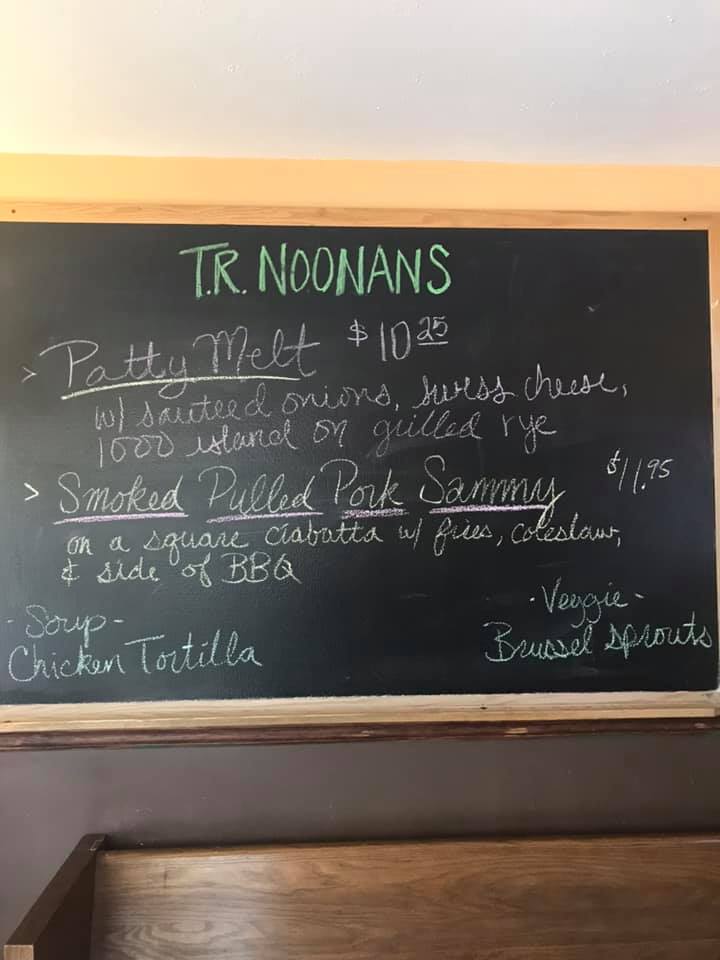 T.R. NOONANS
> Patty Melt $10 25
w/ sauteed onions, swiss cheese,
1000 island on grilled rye
> Smoked Pulled Pork Sammy $11.95
on a square ciabatta w/ fries, coleslaw,
& side of BBQ
- Soup -
Chicken Tortilla
- Veggie -
Brussel sprouts